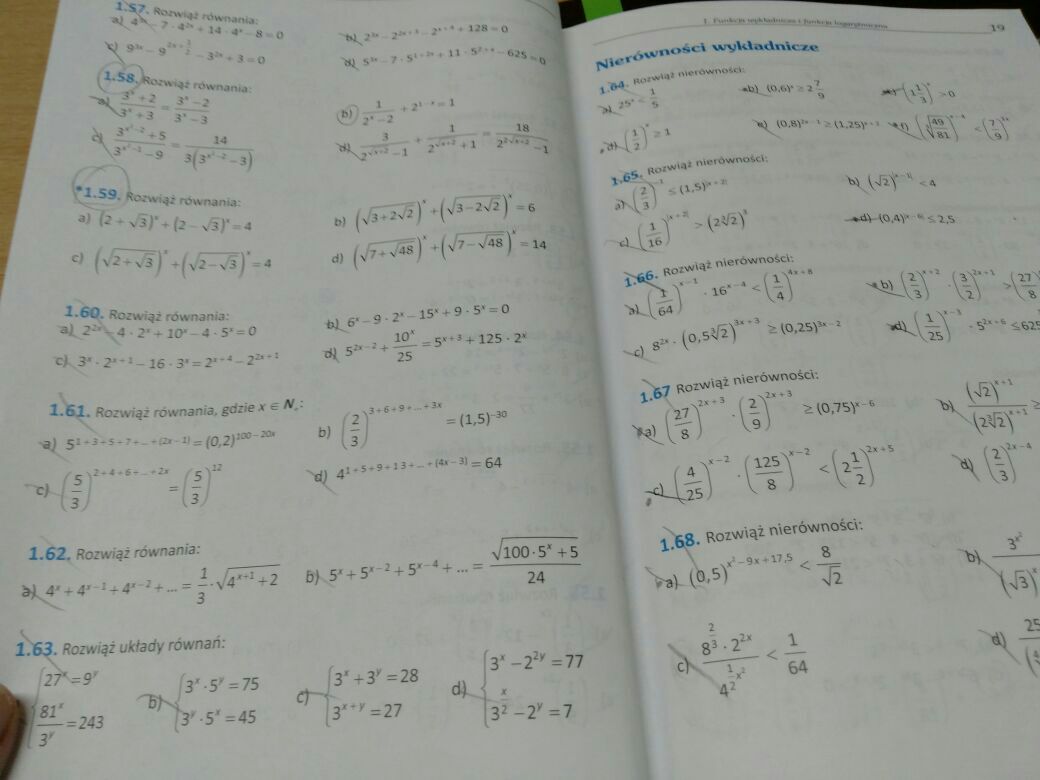 1.57. Rozwiąż równania:
a) 4³ˣ − 7 · 4²ˣ + 14 · 4ˣ − 8 = 0
b) 2³ˣ − 2²ˣ⁺³ − 2ˣ⁺⁴ + 128 = 0
d) 5³ˣ − 7 · 5¹⁺²ˣ + 11 · 5²⁺ˣ − 625 = 0
1.58. Rozwiąż równania:
a) (3ˣ + 2)/(3ˣ + 3) = (3ˣ − 2)/(3ˣ − 3)
b) 1/(2ˣ − 2) + 2¹⁻ˣ = 1
d) 3/(2^(√(x+2)) − 1) + 1/(2^(√(x+2)) + 1) = 18/(2^(2√(x+2)) − 1)
*1.59. Rozwiąż równania:
a) (2 + √3)ˣ + (2 − √3)ˣ = 4
b) (√(3 + 2√2))ˣ + (√(3 − 2√2))ˣ = 6
c) (√(2 + √3))ˣ + (√(2 − √3))ˣ = 4
d) (√(7 + √48))ˣ + (√(7 − √48))ˣ = 14
1.60. Rozwiąż równania:
a) 2²ˣ − 4 · 2ˣ + 10ˣ − 4 · 5ˣ = 0
b) 6ˣ − 9 · 2ˣ − 15ˣ + 9 · 5ˣ = 0
c) 3ˣ · 2ˣ⁺¹ − 16 · 3ˣ = 2ˣ⁺⁴ − 2²ˣ⁺¹
d) 5²ˣ⁻² + 10ˣ/25 = 5ˣ⁺³ + 125 · 2ˣ
1.61. Rozwiąż równania, gdzie x ∈ N₊:
a) 5^(1+3+5+7+...+(2x−1)) = (0,2)^(100−20x)
b) (2/3)^(3+6+9+...+3x) = (1,5)⁻³⁰
c) (5/3)^(2+4+6+...+2x) = (5/3)¹²
d) 4^(1+5+9+13+...+(4x−3)) = 64
1.62. Rozwiąż równania:
a) 4ˣ + 4ˣ⁻¹ + 4ˣ⁻² + ... = 1/3 · √(4ˣ⁺¹ + 2)
b) 5ˣ + 5ˣ⁻² + 5ˣ⁻⁴ + ... = √(100 · 5ˣ + 5)/24
1.63. Rozwiąż układy równań:
a) { 27ˣ = 9ʸ
81ˣ/3ʸ = 243
b) { 3ˣ · 5ʸ = 75
3ʸ · 5ˣ = 45
c) { 3ˣ + 3ʸ = 28
3ˣ⁺ʸ = 27
d) { 3ˣ − 2²ʸ = 77
3^(x/2) − 2ʸ = 7
1. Funkcja wykładnicza i funkcja logarytmiczna 19
Nierówności wykładnicze
1.64. Rozwiąż nierówności:
a) 25ˣ < 1/5
b) (0,6)ˣ ≥ 2 7/9
(1 1/3)ˣ > 0
d) (1/2)ˣ ≥ 1
e) (0,8)²ˣ⁻¹ ≥ (1,25)ˣ⁺¹
1.65. Rozwiąż nierówności:
b) (√2)^|x−1| < 4
c) (1/16)^|x+2| > (2∛2)³
d) (0,4)^|x−6| ≤ 2,5
1.66. Rozwiąż nierówności:
a) (1/64)ˣ⁻¹ · 16ˣ⁻⁴ < (1/4)⁴ˣ⁺⁸
b) (2/3)ˣ⁺² · (3/2)²ˣ⁺¹ > (27/8)
c) 8²ˣ · (0,5∛2)³ˣ⁺³ ≥ (0,25)³ˣ⁻²
d) (1/25)ˣ⁻³ · 5²ˣ⁺⁶ ≤ 625
1.67 Rozwiąż nierówności:
a) (27/8)²ˣ⁺³ · (2/9)²ˣ⁺³ ≥ (0,75)ˣ⁻⁶
b) (√2)ˣ⁺¹/(2∛2)ˣ⁺¹ ≥
c) (4/25)ˣ⁻² · (125/8)ˣ⁻² < (2 1/2)²ˣ⁺⁵
d) (2/3)²ˣ⁻⁴
1.68. Rozwiąż nierówności:
a) (0,5)^(x²−9x+17,5) < 8/√2
b) 3^(x²)/(√3)ˣ
c) (8^(2/3) · 2²ˣ)/4^(½x²) < 1/64
d) 25